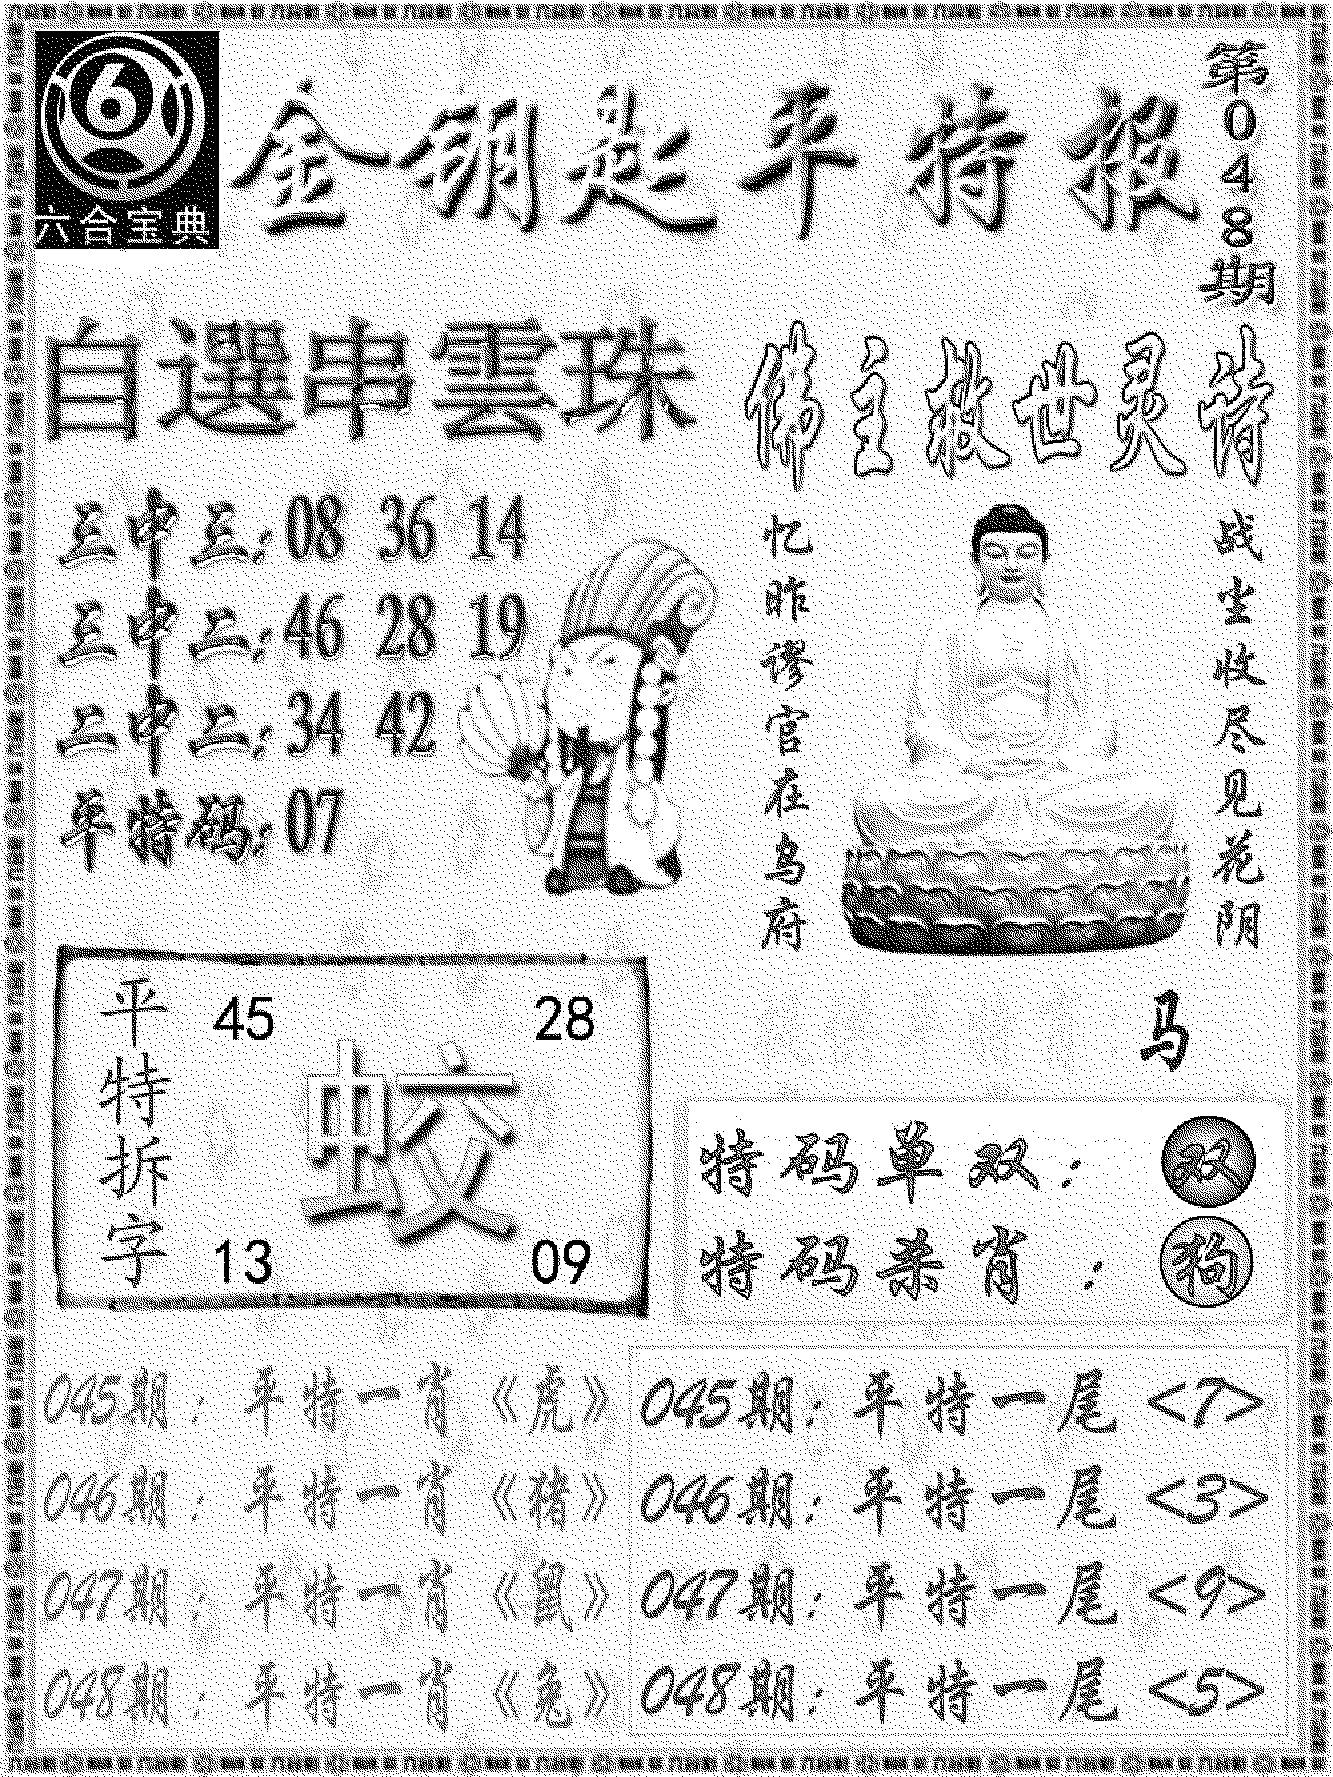 6
六合宝典
金钥匙平特报
第048期
自選串雲珠
三中三:08 36 14
三中二:46 28 19
二中二:34 42
平特码:07
佛主救世灵诗
战尘收尽见花阴
忆昨谬官在乌府
马
平特拆字
45 28
蛟
13 09
特码单双:双
特码杀肖:狗
045期:平特一肖《虎》
046期:平特一肖《猪》
047期:平特一肖《鼠》
048期:平特一肖《兔》
045期:平特一尾<7>
046期:平特一尾<3>
047期:平特一尾<9>
048期:平特一尾<5>